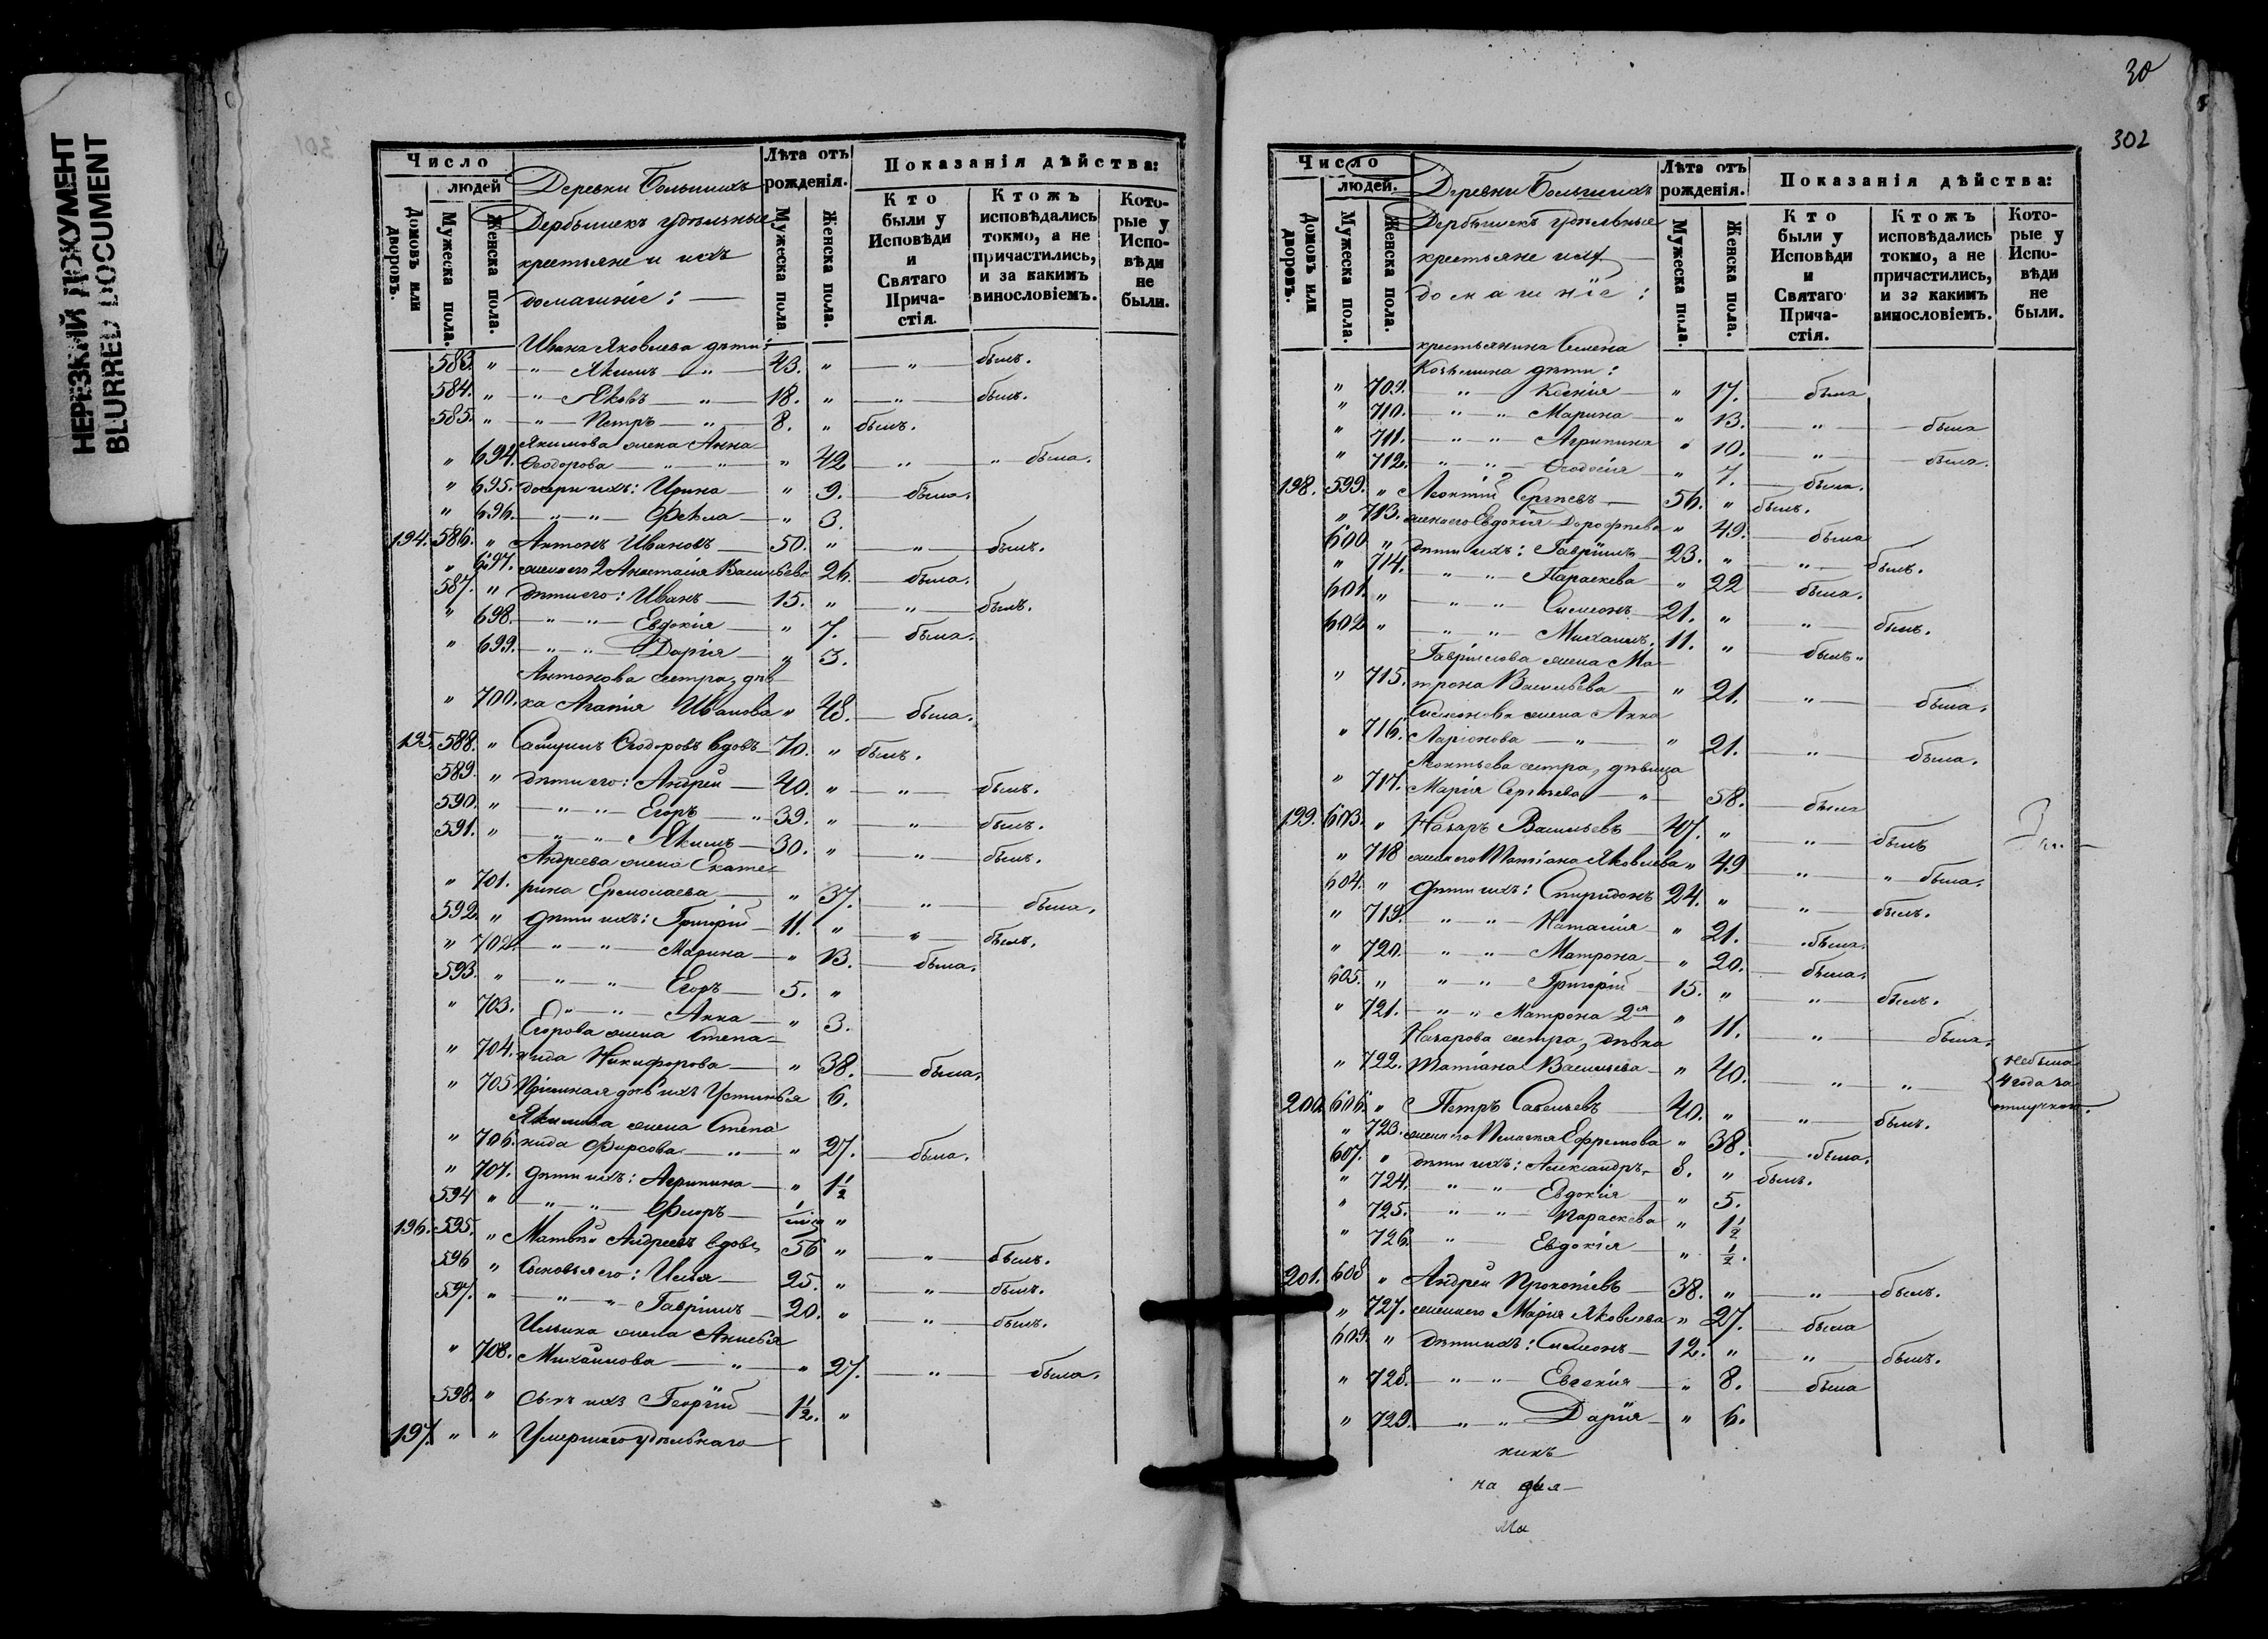 НЕРЕЗКИЙ ДОКУМЕНТ
BLURRED DOCUMENT
Число
людей
Домовъ или дворовъ.
Мужеска пола.
Женска пола.
Деревни Большихъ
Дербышекъ удѣльные
крестьяне и ихъ
домашніе:
Лѣта отъ рожденія.
Мужеска пола
Женска пола.
Показанія дѣйства:
Кто были у Исповѣди и Святаго Прича-стія.
Ктожъ исповѣдались токмо, а не причастились, и за какимъ винословіемъ.
Кото-рые у Испо-вѣди не были.
Ивана Яковлева дѣти:
583. " — " — Якимъ — " — 43. " — " — былъ.
584. " — " — Яковъ — " — 18. " — " — былъ.
585. " — " — Петръ — " — 8. " былъ.
Якимова жена Анна
" 694. Ѳеодорова — " — " — " 42 — " — " была.
" 695. дочери ихъ: Ирина — " 9. — была.
" 696. — " — " — Ѳёкла — " 3.
194. 586. " Антонъ Ивановъ — 50. " — " — былъ.
" 697. жена его 2 Анастасія Васильева 26. — была.
587. " дѣти его: Иванъ — 15. " — " — былъ.
" 698. — " — " — Евдокія — " 7. — была.
" 699. — " — " — Дарія — " 3.
Антонова сестра, дѣв-
" 700. ка Агапія Иванова " 48. — была.
195. 588. " Самуилъ Ѳеодоровъ вдовъ 70. " былъ.
589. " дѣти его: Андрей — 40. " — " — былъ.
590. " — " — " — Егоръ — " 39. " — " — былъ.
591. " — " — " — Якимъ — 30. " — " — былъ.
Андреева жена Екате-
" 701. рина Ермолаева — " 37. — " — была.
592. " дѣти ихъ: Григорій — 11. " — " — былъ.
" 702. — " — " — Марина — " 13. — была.
593. " — " — " — Егоръ — 5. "
" 703. — " — " — Анна — " 3.
Егорова жена Степа-
" 704. нида Никифорова — " 38. — была.
" 705 Пріемная дочь ихъ Устинья 6.
Якимова жена Степа
" 706. нида Фирсова — " — " 27. — была.
" 707. дѣти ихъ: Агрипина — " 1½
594 " — " — " — Флоръ —
196. 595. " Матвѣй Андреевъ вдовъ 56 " " — былъ.
596 " Сыновья его: Илья — 25. " — " — былъ.
597. " — " — " — Гавріилъ — 20. " — " — былъ.
Ильина жена Анисья
" 708. Михаилова — " — " 27. — " — была.
598. " Сынъ ихъ Георгій — 1½. "
197. " " Умершаго удѣльнаго —
30
302
Число
людей.
Домовъ или дворовъ.
Мужеска пола.
Женска пола.
Деревни Большихъ
Дербышекъ удѣльные
крестьяне ихъ
домашніе:
Лѣта отъ рожденія.
Мужеска пола.
Женска пола.
Показанія дѣйства:
Кто были у Исповѣди и Святаго Прича-стія.
Ктожъ исповѣдались токмо, а не причастились, и за какимъ винословіемъ.
Кото-рые у Испо-вѣди не были.
крестьянина Семена
Козьмина дѣти:
" 709. — " — Ксенія — " 17. — была
" 710. — " — " — Марина — " 13. — " — была
" 711. — " — " — Агрипина " 10. — " — была.
" 712. — " — " — Ѳеодосія " 7. — была.
198. 599. " Леонтій Сергѣевъ — 56. " былъ.
" 713. жена его Евдокія Дорофѣева " 49. — была
600 " дѣти ихъ: Гавріилъ — 23. " — " — былъ.
" 714. — " — " — Параскева — " 22 — была.
601. " — " — " — Симеонъ — 21. " — " — былъ.
602 " — " — " — Михаилъ. 11. " — былъ.
Гавріилова жена Ма-
" 715. трона Васильева — " 21. — " — была.
Симеонова жена Анна
" 716. Ларіонова — " — " 21. — " — была.
Леонтьева сестра, дѣвица
" 717. Марія Сергѣева — " — 58. — была
199. 603. " Назаръ Васильевъ — 47. " — " — былъ
" 718 жена его Татіана Яковлева " 49 — " — " была.
604. " дѣти ихъ: Спиридонъ 24. " — " — былъ.
" 719. — " — " — Наталія — " 21. — была.
" 720. — " — " — Матрона — " 20. — была.
605. " — " — " — Григорій 15. " — " — былъ.
" 721. — " — " Матрона 2я " 11. — " — была.
Назарова сестра, дѣвка
" 722. Татіана Васильева — " 40. — " — " — небыла 4 года за отлучкою.
200. 606. " Петръ Савельевъ — 40. " — " — былъ.
" 723. жена его Пелагія Ефремова " 38. — была.
607. " дѣти ихъ: Александръ 8. " былъ.
" 724. — " — " — Евдокія — " 5.
" 725. — " — " — Параскева " 1½
" 726. — " — Евдокія — " ½.
201. 608 " Андрей Прокопіевъ — 38. " — " — былъ.
" 727. жена его Марія Яковлева " 27. — была
609. " дѣти ихъ: Симеонъ — 12. " — " — былъ.
" 728. — " — " — Евгенія — " 8. — была
" 729. — " — " — Дарія — " 6.
никъ
на дія-